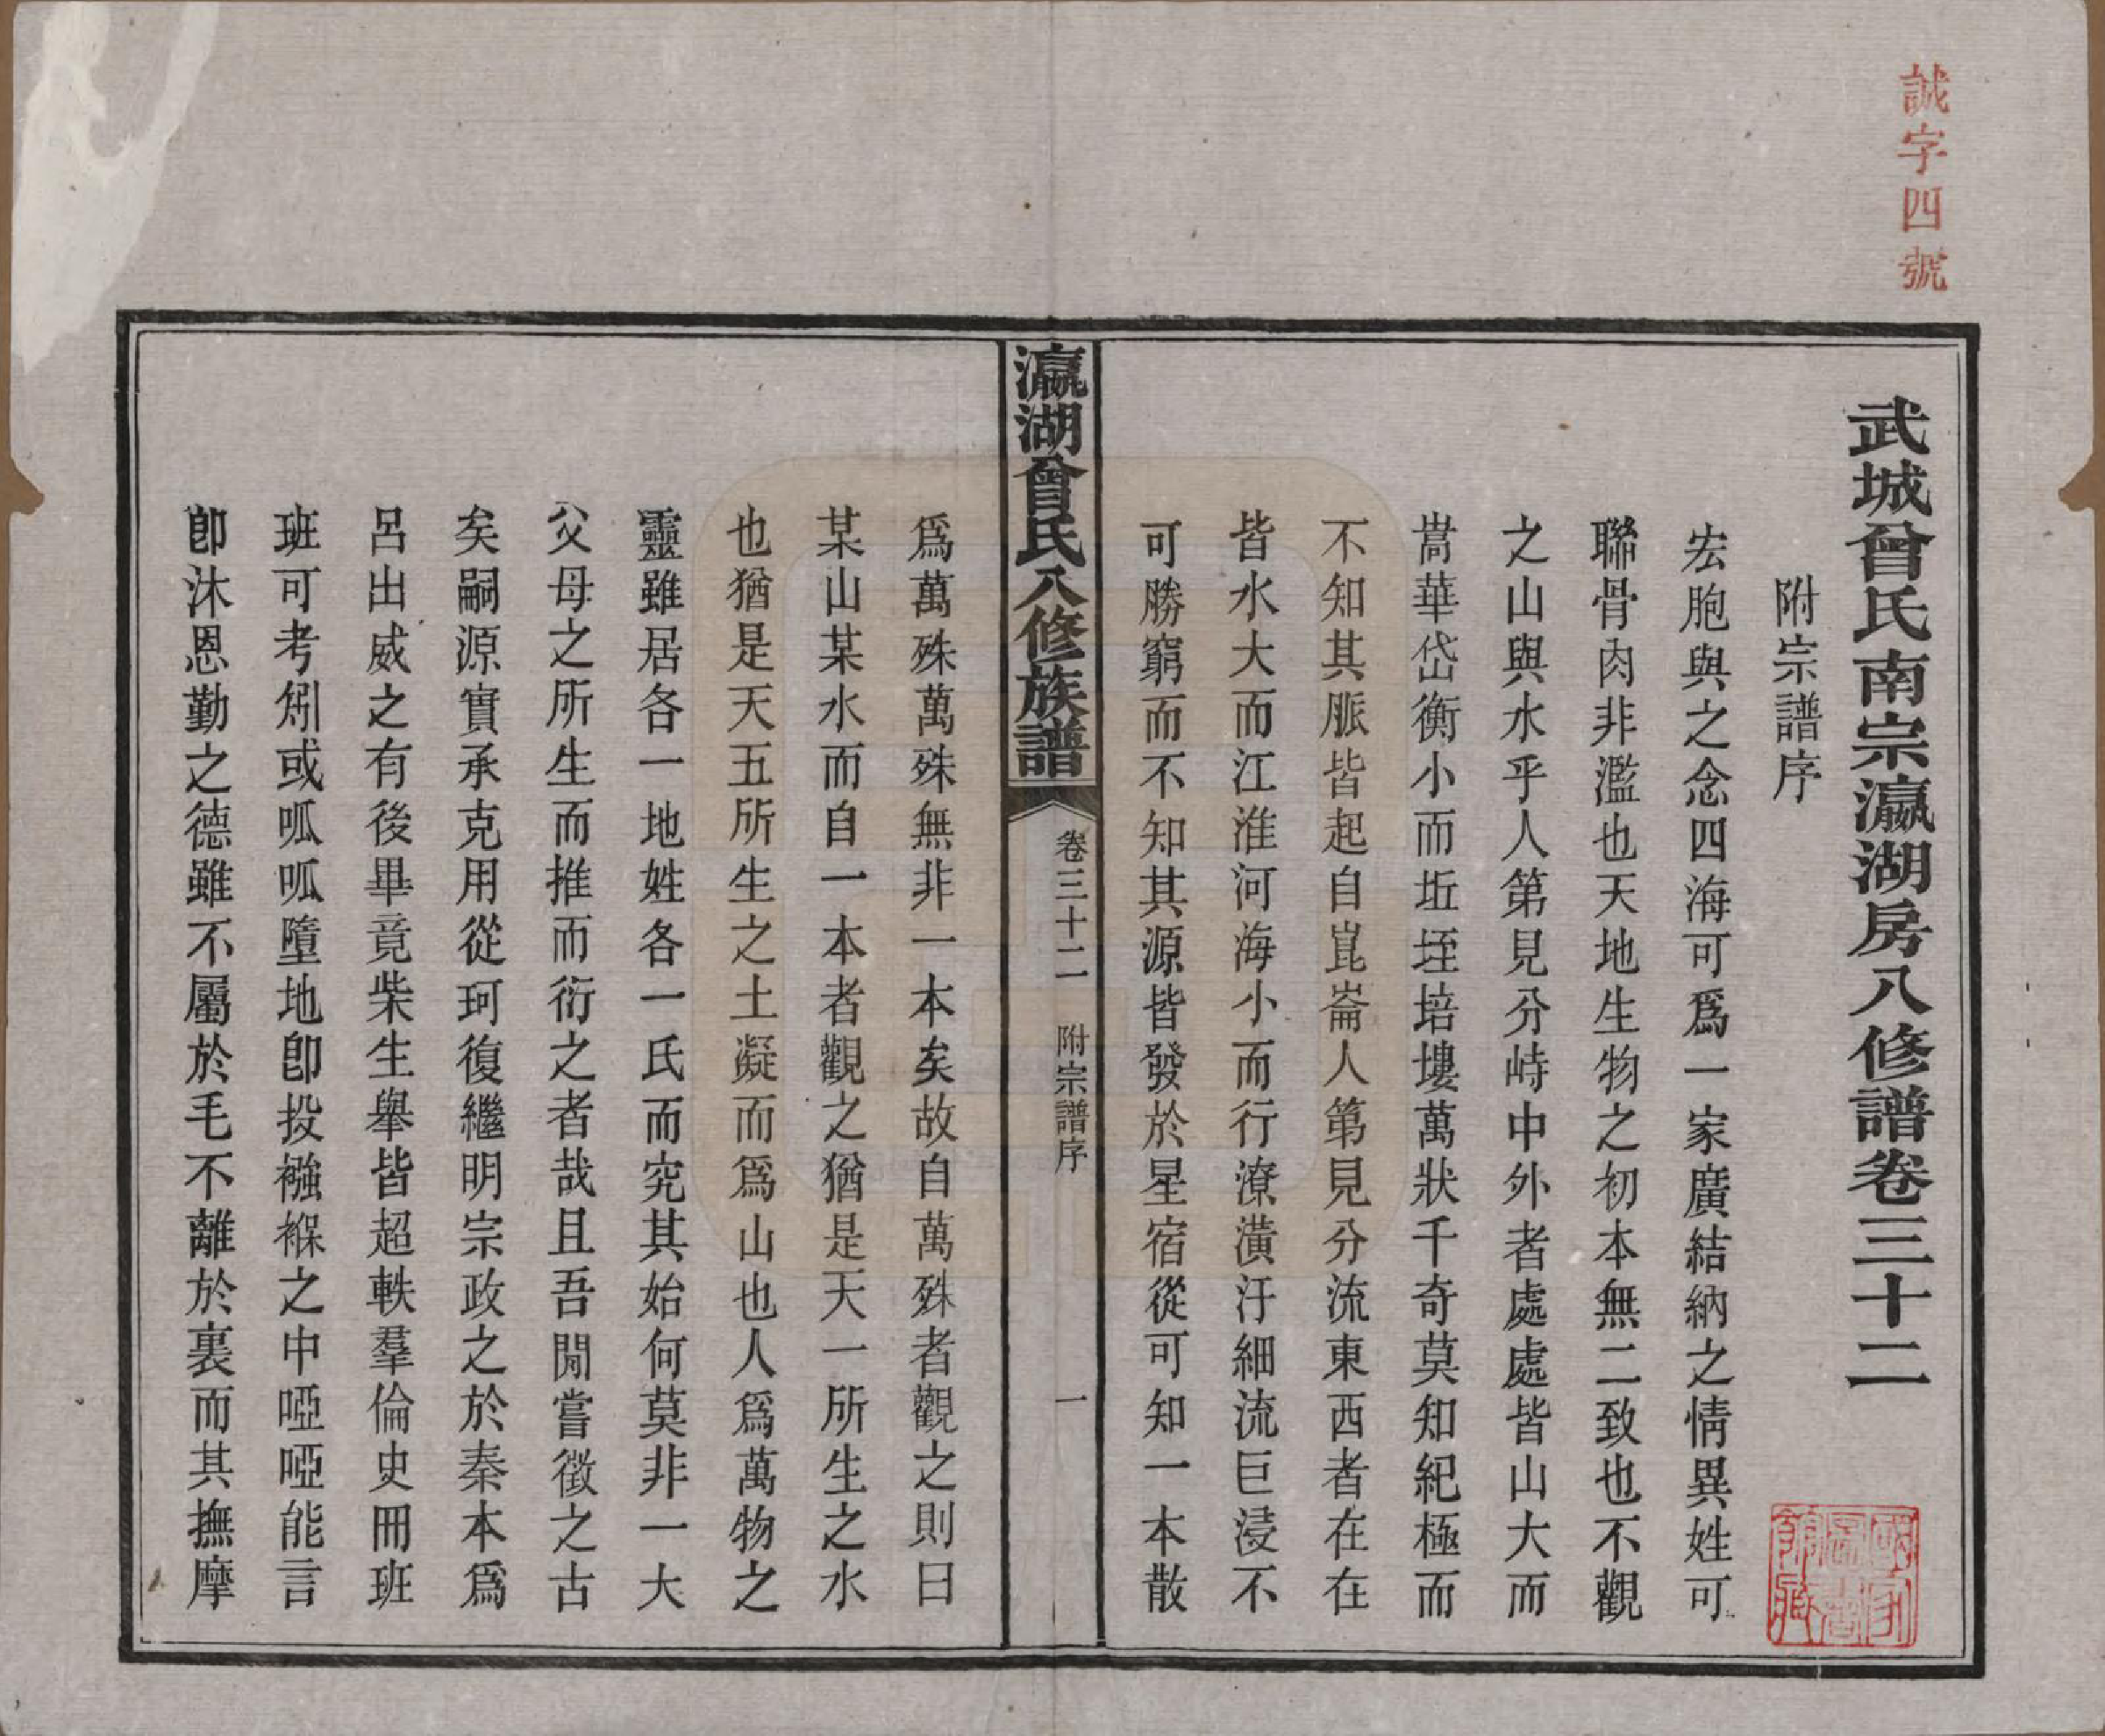 誠字四號
武城曾氏南宗瀛湖房八修譜卷三十二
附宗譜序
宏胞與之念四海可爲一家廣結納之情異姓可
聯骨肉非濫也天地生物之初本無二致也不觀
之山與水乎人第見分峙中外者處處皆山大而
嵩華岱衡小而坵垤培塿萬狀千奇莫知紀極而
不知其脈皆起自崑崙人第見分流東西者在在
皆水大而江淮河海小而行潦潢汙細流巨浸不
可勝窮而不知其源皆發於星宿從可知一本散
瀛湖曾氏八修族譜 卷三十二 附宗譜序 一
爲萬殊萬殊無非一本矣故自萬殊者觀之則曰
某山某水而自一本者觀之猶是天一所生之水
也猶是天五所生之土凝而爲山也人爲萬物之
靈雖居各一地姓各一氏而究其始何莫非一大
父母之所生而推而衍之者哉且吾閒嘗徵之古
矣嗣源實承克用從珂復繼明宗政之於秦本爲
呂出威之有後畢竟柴生舉皆超軼羣倫史冊班
班可考矧或呱呱墮地卽投襁褓之中啞啞能言
卽沐恩勤之德雖不屬於毛不離於裏而其撫摩